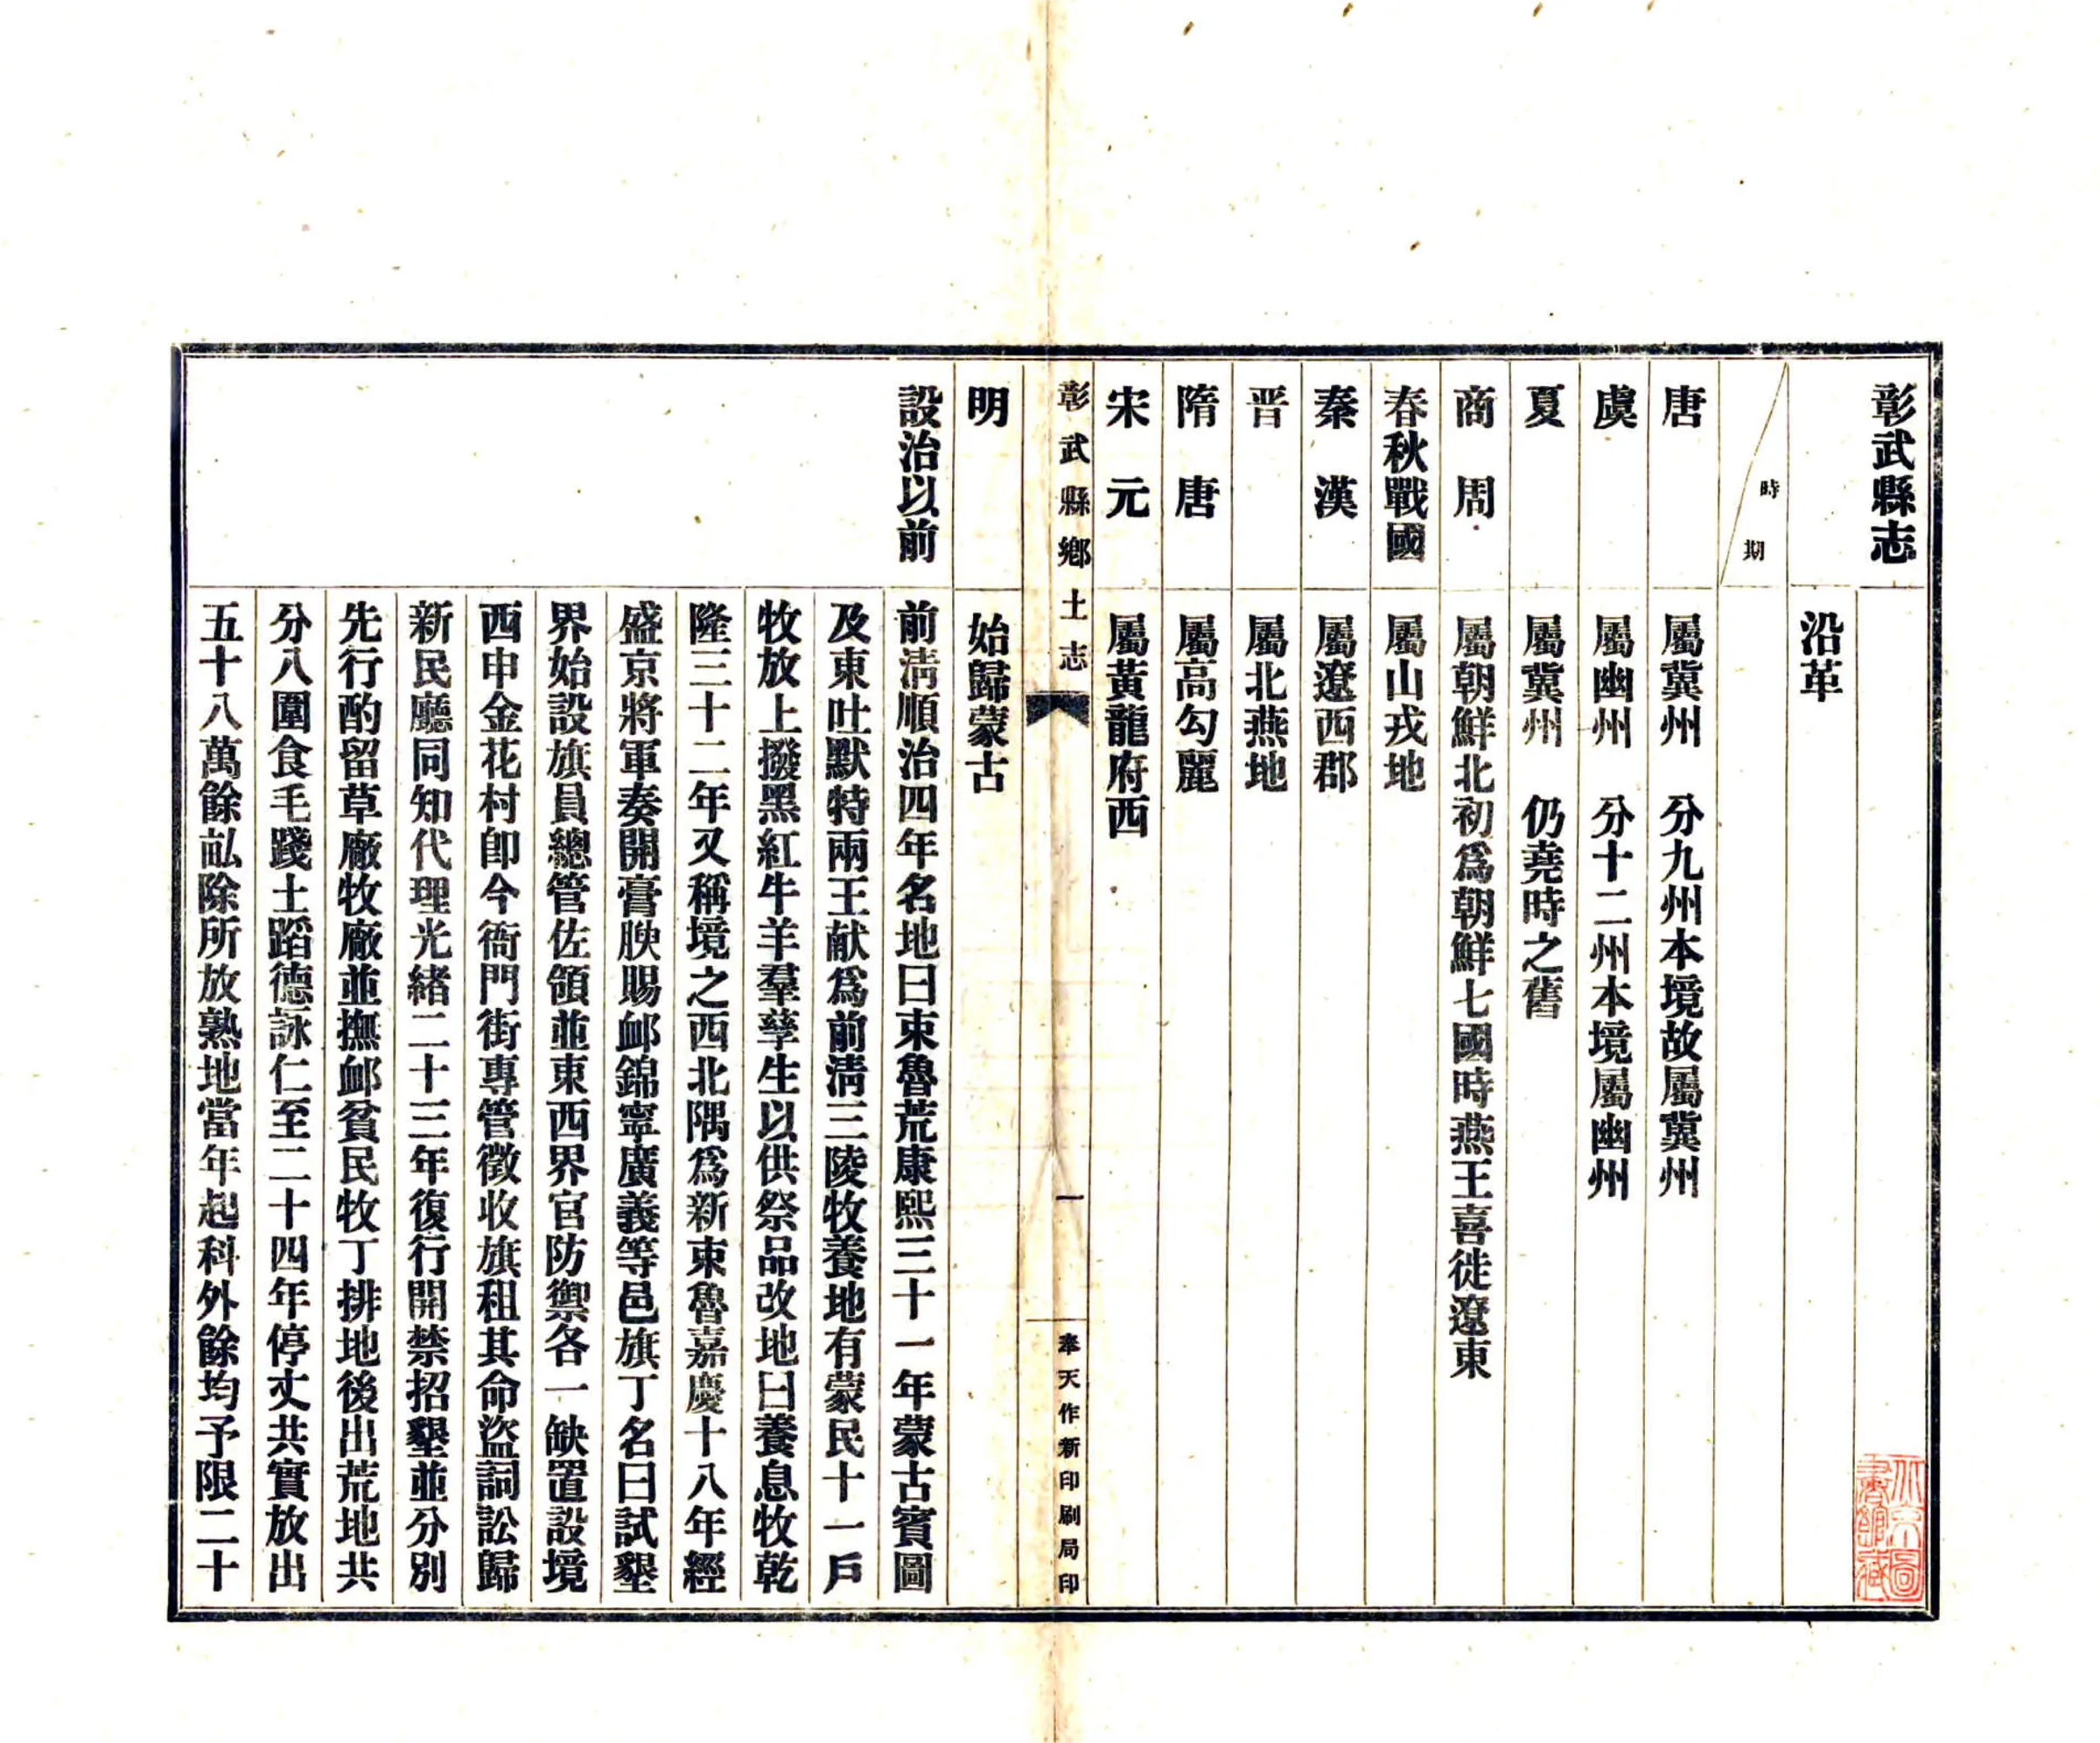 彰武縣志
沿革
時期
唐 屬冀州 分九州本境故屬冀州
虞 屬幽州 分十二州本境屬幽州
夏 屬冀州 仍堯時之舊
商周 屬朝鮮北初爲朝鮮七國時燕王喜徙遼東
春秋戰國 屬山戎地
秦漢 屬遼西郡
晋 屬北燕地
隋唐 屬高勾麗
宋元 屬黃龍府西
彰武縣鄉土志 一 奉天作新印刷局印
明 始歸蒙古
設治以前 前淸順治四年名地曰束魯荒康熙三十一年蒙古賓圖
及東吐默特兩王献爲前淸三陵牧養地有蒙民十一戶
牧放上撥黑紅牛羊羣孳生以供祭品改地曰養息牧乾
隆三十二年又稱境之西北隅爲新束魯嘉慶十八年經
盛京將軍奏開膏腴賜䘏錦寧廣義等邑旗丁名曰試墾
界始設旗員總管佐領並東西界官防禦各一缺置設境
西申金花村卽今衙門街專管徵收旗租其命盜詞訟歸
新民廳同知代理光緒二十三年復行開禁招墾並分別
先行酌留草廠牧廠並撫䘏貧民牧丁排地後出荒地共
分八圍食毛踐土蹈德詠仁至二十四年停丈共實放出
五十八萬餘畝除所放熟地當年起科外餘均予限二十
北京圖書館藏